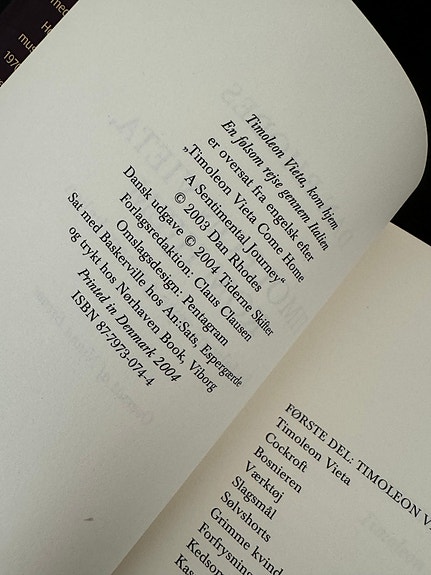 Timoleon Vieta, kom hjem
En følsom rejse gennem Italien
er oversat fra engelsk efter
„Timoleon Vieta Come Home
A Sentimental Journey“
© 2003 Dan Rhodes
Dansk udgave © 2004 Tiderne Skifter
Forlagsredaktion: Claus Clausen
Omslagsdesign: Pentagram
Sat med Baskerville hos An:Sats, Espergærde
og trykt hos Norhaven Book, Viborg
Printed in Denmark 2004
ISBN 87-7973-074-4
FØRSTE DEL: TIMOLEON V
Timoleon Vieta
Cockroft
Bosnieren
Værktøj
Slagsmål
Sølvshorts
Grimme kvind
Forfrysning
Kedson
Kas